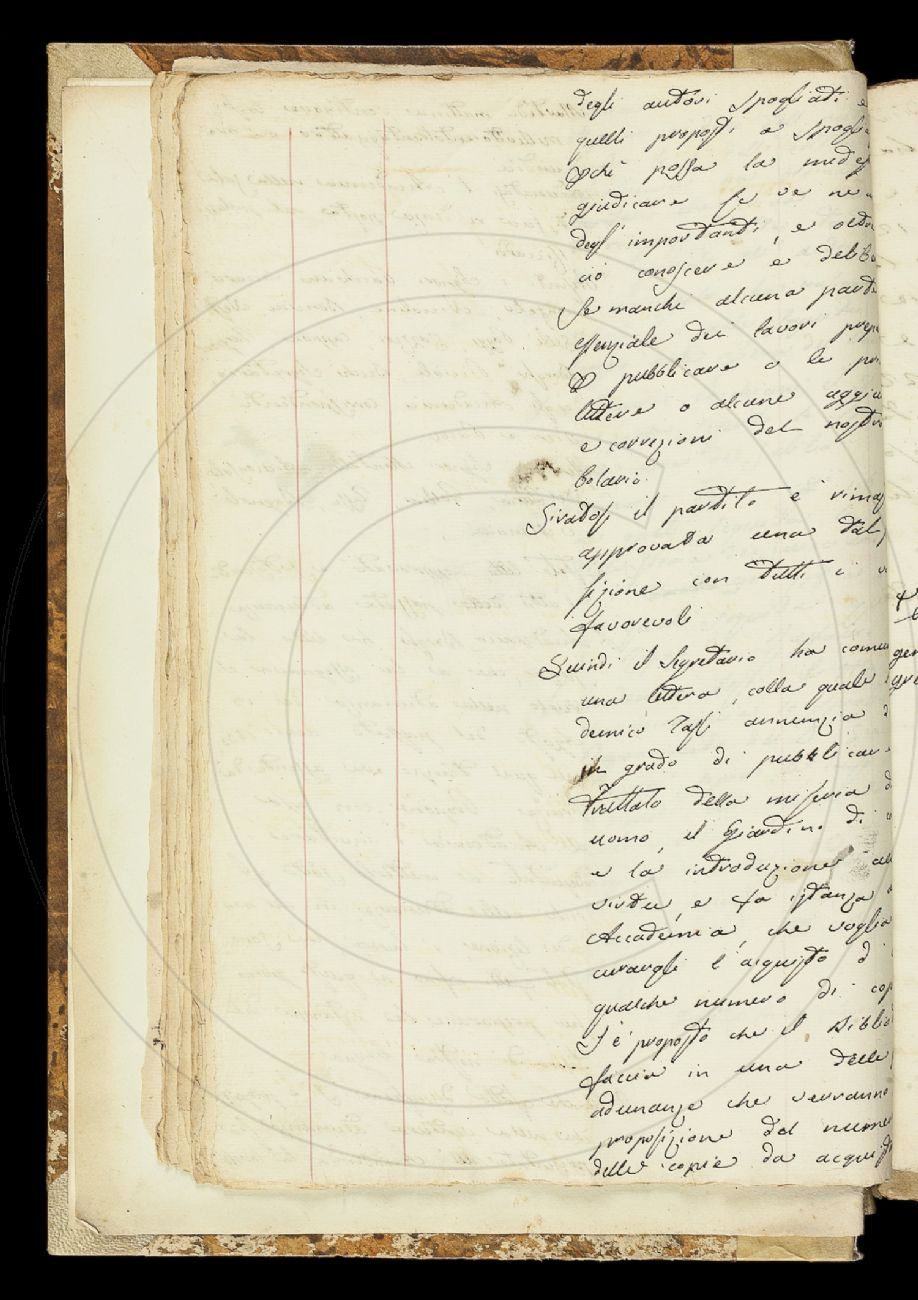 degli autori spogliati e
quelli proposti a spogli
pchè possa la medes
giudicare se ve ne
degl' importanti, e oltr
ciò conoscere e delib
se manchi alcuna part
essenziale dei lavori prep
p pubblicare o le pr
lettere o alcune aggiu
e correzioni del nostr
bolario.
Giratosi il partito è rimas
approvata una tal
sizione con tutti i v
favorevoli
Quindi il Segretario ha comu
una lettera, colla quale
demico Tassi annunzia
in grado di pubblicar
Trattato della miseria d
uomo, il Giardin. di
e la introduzione al
virtù, e fa istanza
Accademia, che voglia
curargli l'acquisto d
qualche numero di cop
S'è proposto che il Biblio
faccia in una delle
adunanze che verranno
proposizione del nume
delle copie da acquist